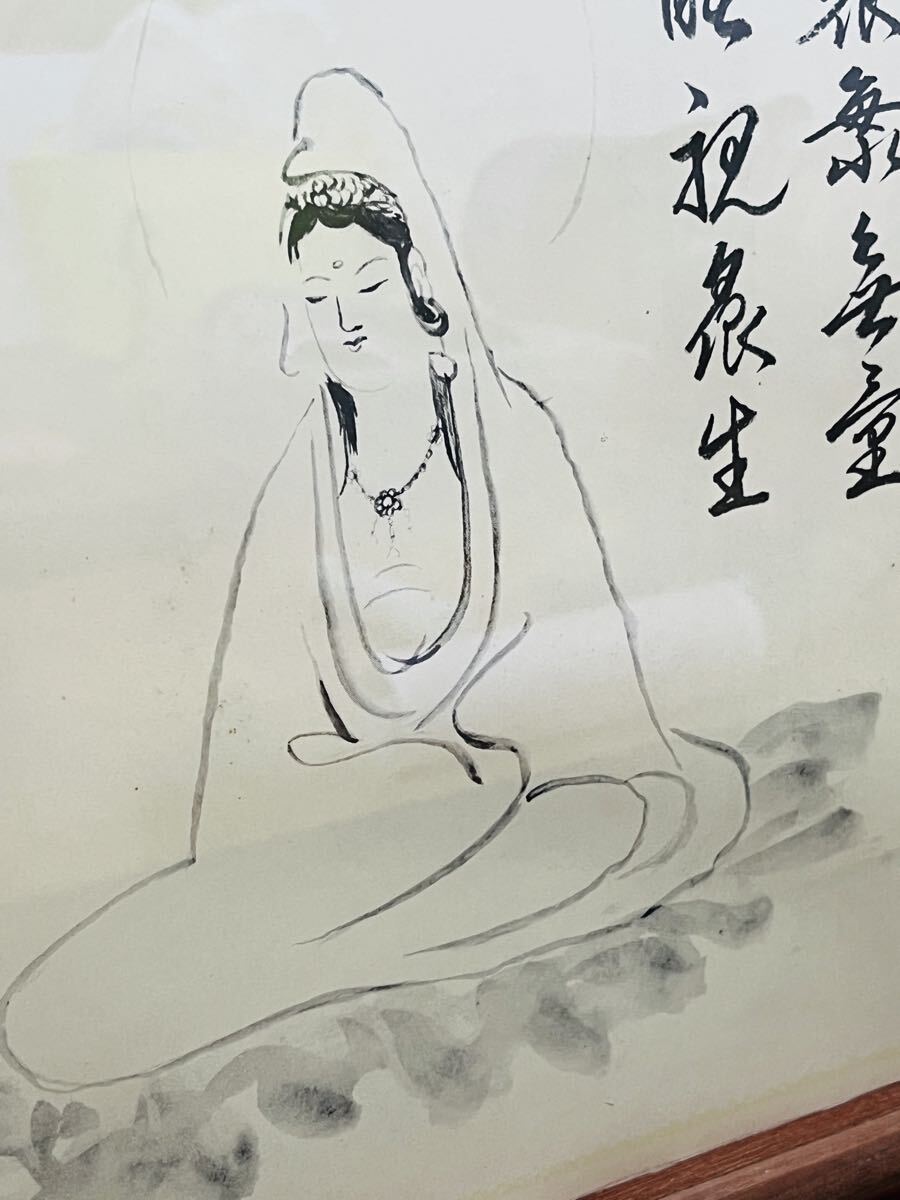 聚海無量
眼視衆生